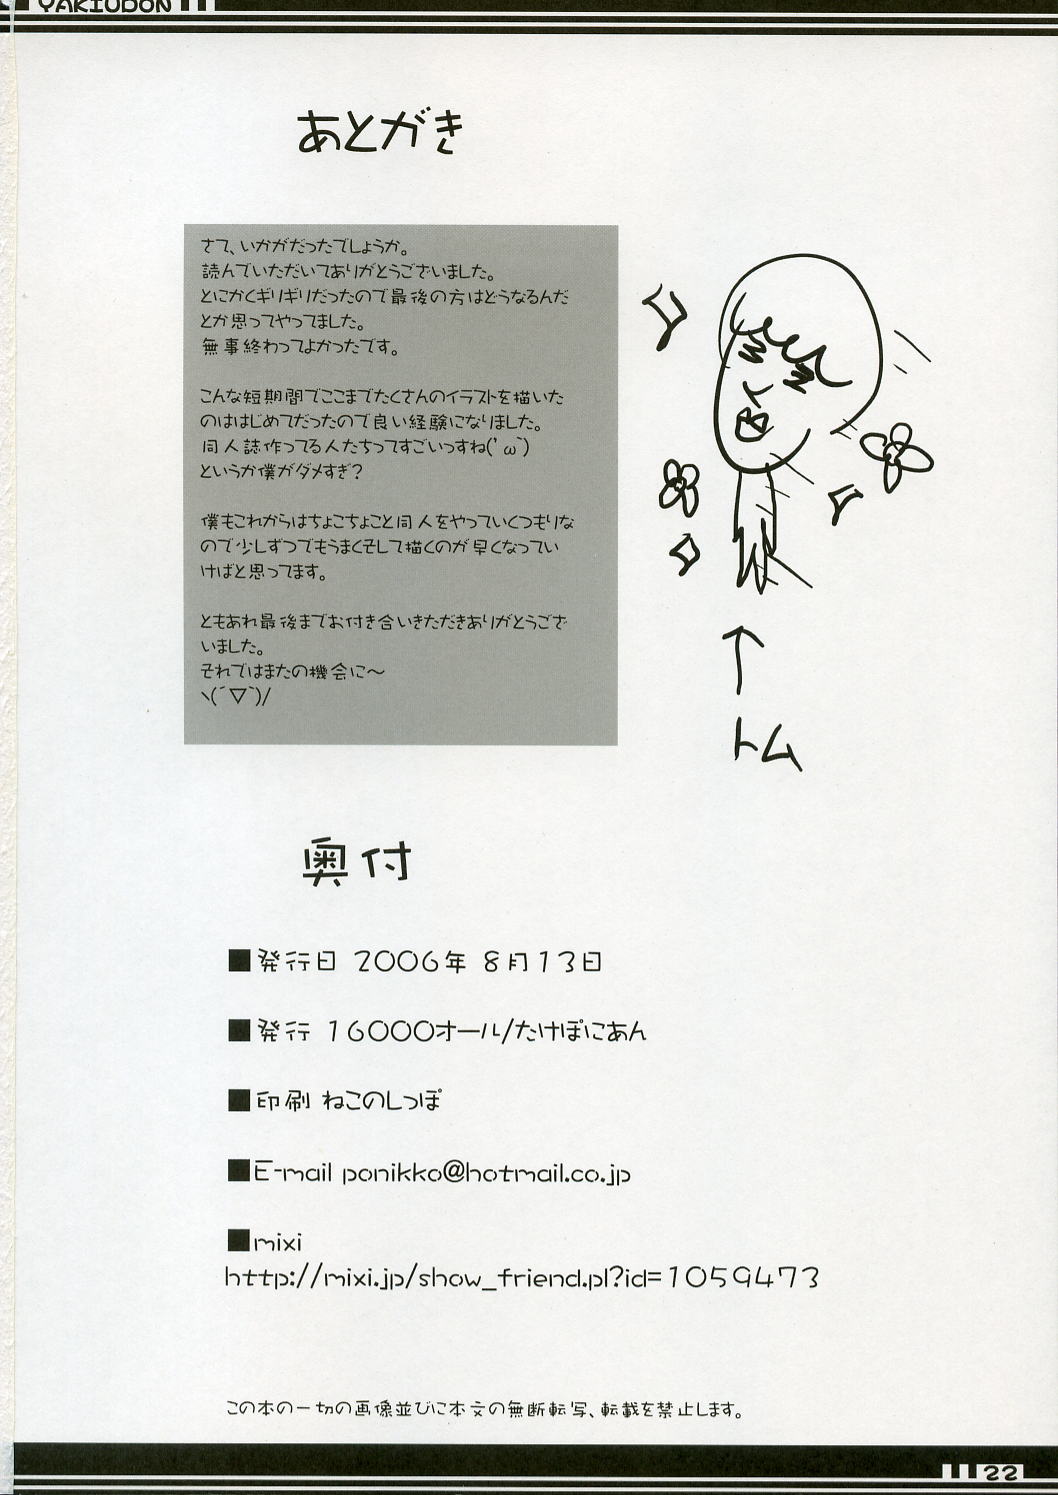 YAKIUDON
あとがき
さて、いかがだったでしょうか。
読んでいただいてありがとうございました。
とにかくギリギリだったので最後の方はどうなるんだ
とか思ってやってました。
無事終わってよかったです。
こんな短期間でここまでたくさんのイラストを描いた
のははじめてだったので良い経験になりました。
同人誌作ってる人たちってすごいっすね(’ω`)
というか僕がダメすぎ?
僕もこれからはちょこちょこと同人をやっていくつもりな
ので少しずつでもうまくそして描くのが早くなってい
けばと思ってます。
ともあれ最後までお付き合いきただきありがとうござ
いました。
それではまたの機会に〜
ヽ(´▽`)/
↑
トム
奥付
■発行日 2006年 8月13日
■発行 16000オール/たけぽにあん
■印刷 ねこのしっぽ
■E-mail ponikko@hotmail.co.jp
■mixi
http://mixi.jp/show_friend.pl?id=1059473
この本の一切の画像並びに本文の無断転写、転載を禁止します。
22